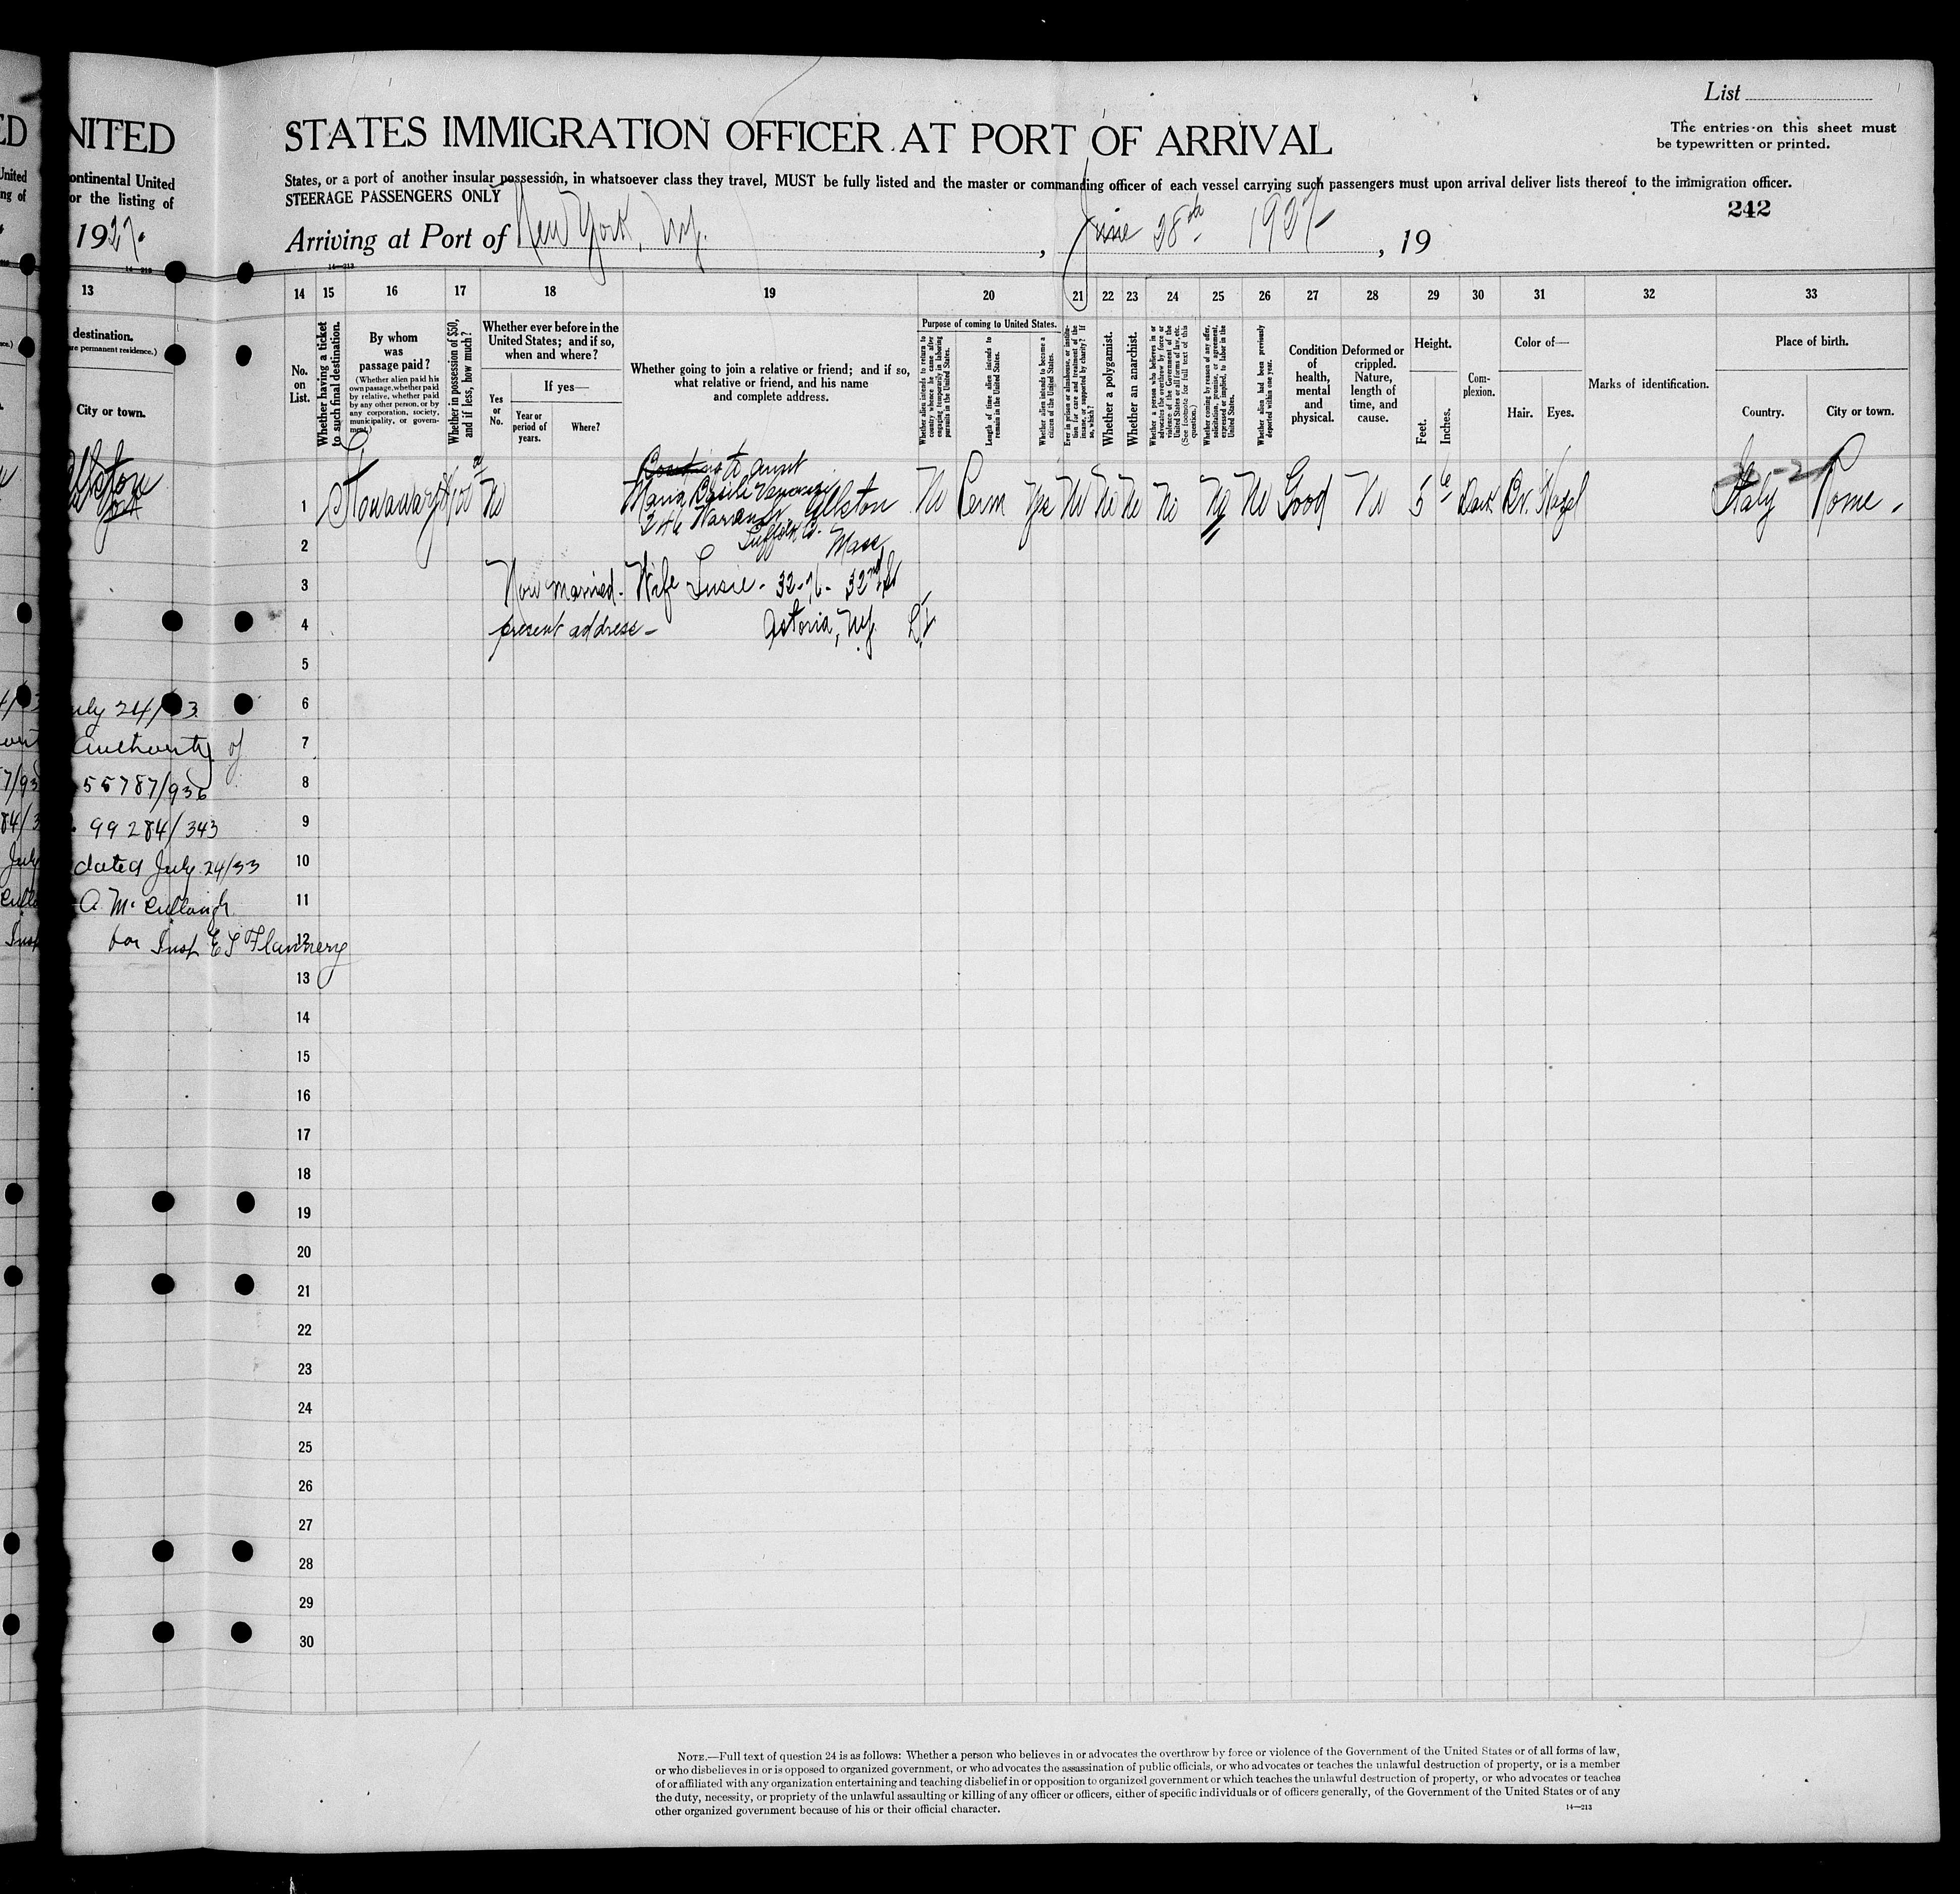 List
STATES IMMIGRATION OFFICER AT PORT OF ARRIVAL
The entries on this sheet must
be typewritten or printed.
States, or a port of another insular possession, in whatsoever class they travel, MUST be fully listed and the master or commanding officer of each vessel carrying such passengers must upon arrival deliver lists thereof to the immigration officer.
STEERAGE PASSENGERS ONLY
242
Arriving at Port of New York, N.Y. , June 28th 1927 , 19
NITED
ontinental United
or the listing of
1927.
13
destination.
City or town.
14 15 16 17 18 19 20 21 22 23 24 25 26 27 28 29 30 31 32 33
No. on List.
Whether having a ticket to such final destination.
By whom was passage paid?
(Whether alien paid his own passage, whether paid by relative, whether paid by any other person, or by any corporation, society, municipality, or government.)
Whether in possession of $50, and if less, how much?
Whether ever before in the United States; and if so, when and where?
Yes or No.
If yes—
Year or period of years.
Where?
Whether going to join a relative or friend; and if so, what relative or friend, and his name and complete address.
Purpose of coming to United States.
Whether alien intends to return to country whence he came after engaging temporarily in laboring pursuits in the United States.
Length of time alien intends to remain in the United States.
Whether alien intends to become a citizen of the United States.
Ever in prison or almshouse, or institution for care and treatment of the insane, or supported by charity? If so, which?
Whether a polygamist.
Whether an anarchist.
Whether a person who believes in or advocates the overthrow by force or violence of the Government of the United States or all forms of law, etc. (See footnote for full text of this question.)
Whether coming by reason of any offer, solicitation, promise, or agreement, expressed or implied, to labor in the United States.
Whether alien had been previously deported within one year.
Condition of health, mental and physical.
Deformed or crippled. Nature, length of time, and cause.
Height.
Feet. Inches.
Complexion.
Color of—
Hair. Eyes.
Marks of identification.
Place of birth.
Country. City or town.
Allston
1 Stowaway 100 No
Aunt
Maria
246 Allston
Suffolk Co. Mass
No Perm Yes No No No No No No Good No 5 6 Dark Br. Hazel Italy Rome
2
3 Now married. Wife Susie - 32-76- 32nd St
4 present address - Astoria, N.Y. L.I.
5
6 July 24/33
7 authority of
8 55787/936
9 99284/343
10 dated July 24/33
11 A McCullough
12 for Insp E S Flannery
13
14
15
16
17
18
19
20
21
22
23
24
25
26
27
28
29
30
NOTE.—Full text of question 24 is as follows: Whether a person who believes in or advocates the overthrow by force or violence of the Government of the United States or of all forms of law,
or who disbelieves in or is opposed to organized government, or who advocates the assassination of public officials, or who advocates or teaches the unlawful destruction of property, or is a member
of or affiliated with any organization entertaining and teaching disbelief in or opposition to organized government or which teaches the unlawful destruction of property, or who advocates or teaches
the duty, necessity, or propriety of the unlawful assaulting or killing of any officer or officers, either of specific individuals or of officers generally, of the Government of the United States or of any
other organized government because of his or their official character.
14—213